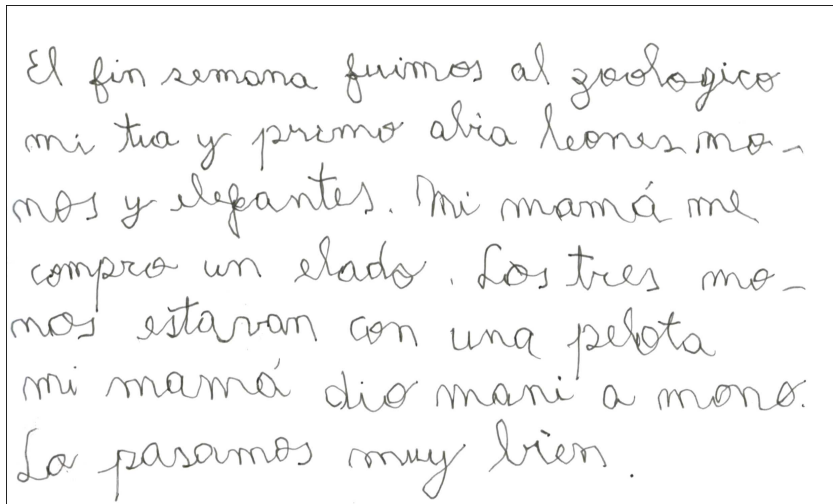 El fin semana fuimos al zoologico
mi tia y primo abia leones mo-
nos y elefantes. Mi mamá me
compro un elado. Los tres mo-
nos estavan con una pelota
mi mamá dio mani a mono.
La pasamos muy bien.